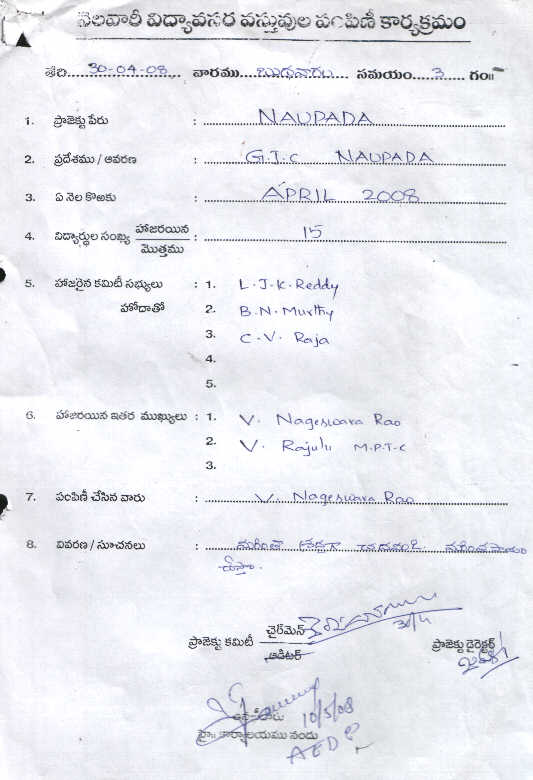 నెలవారీ విద్యావసర వస్తువుల పంపిణీ కార్యక్రమం
తేది..30-04-08.... వారము...బుధవారం... సమయం....3..... గం॥
1. ప్రాజెక్టు పేరు : NAUPADA
2. ప్రదేశము / ఆవరణ : G.J.C NAUPADA
3. ఏ నెల కొఱకు : APRIL 2008
4. విద్యార్థుల సంఖ్య హాజరయిన / మొత్తము : 15
5. హాజరైన కమిటీ సభ్యులు : 1. L.J.K.Reddy
హోదాతో 2. B.N.Murthy
3. C.V. Raja
4.
5.
6. హాజరయిన ఇతర ముఖ్యులు : 1. V. Nageswara Rao
2. V. Rajulu M.P.T.C
3.
7. పంపిణీ చేసిన వారు : V. Nageswara Rao
8. వివరణ / సూచనలు : మరింత శ్రద్ధగా చదవండి.
చైర్‌మెన్ 30/4
ప్రాజెక్టు కమిటీ ఆడిటర్ ప్రాజెక్టు డైరెక్టర్
10/5/08
కార్యాలయము నందు
AEDP